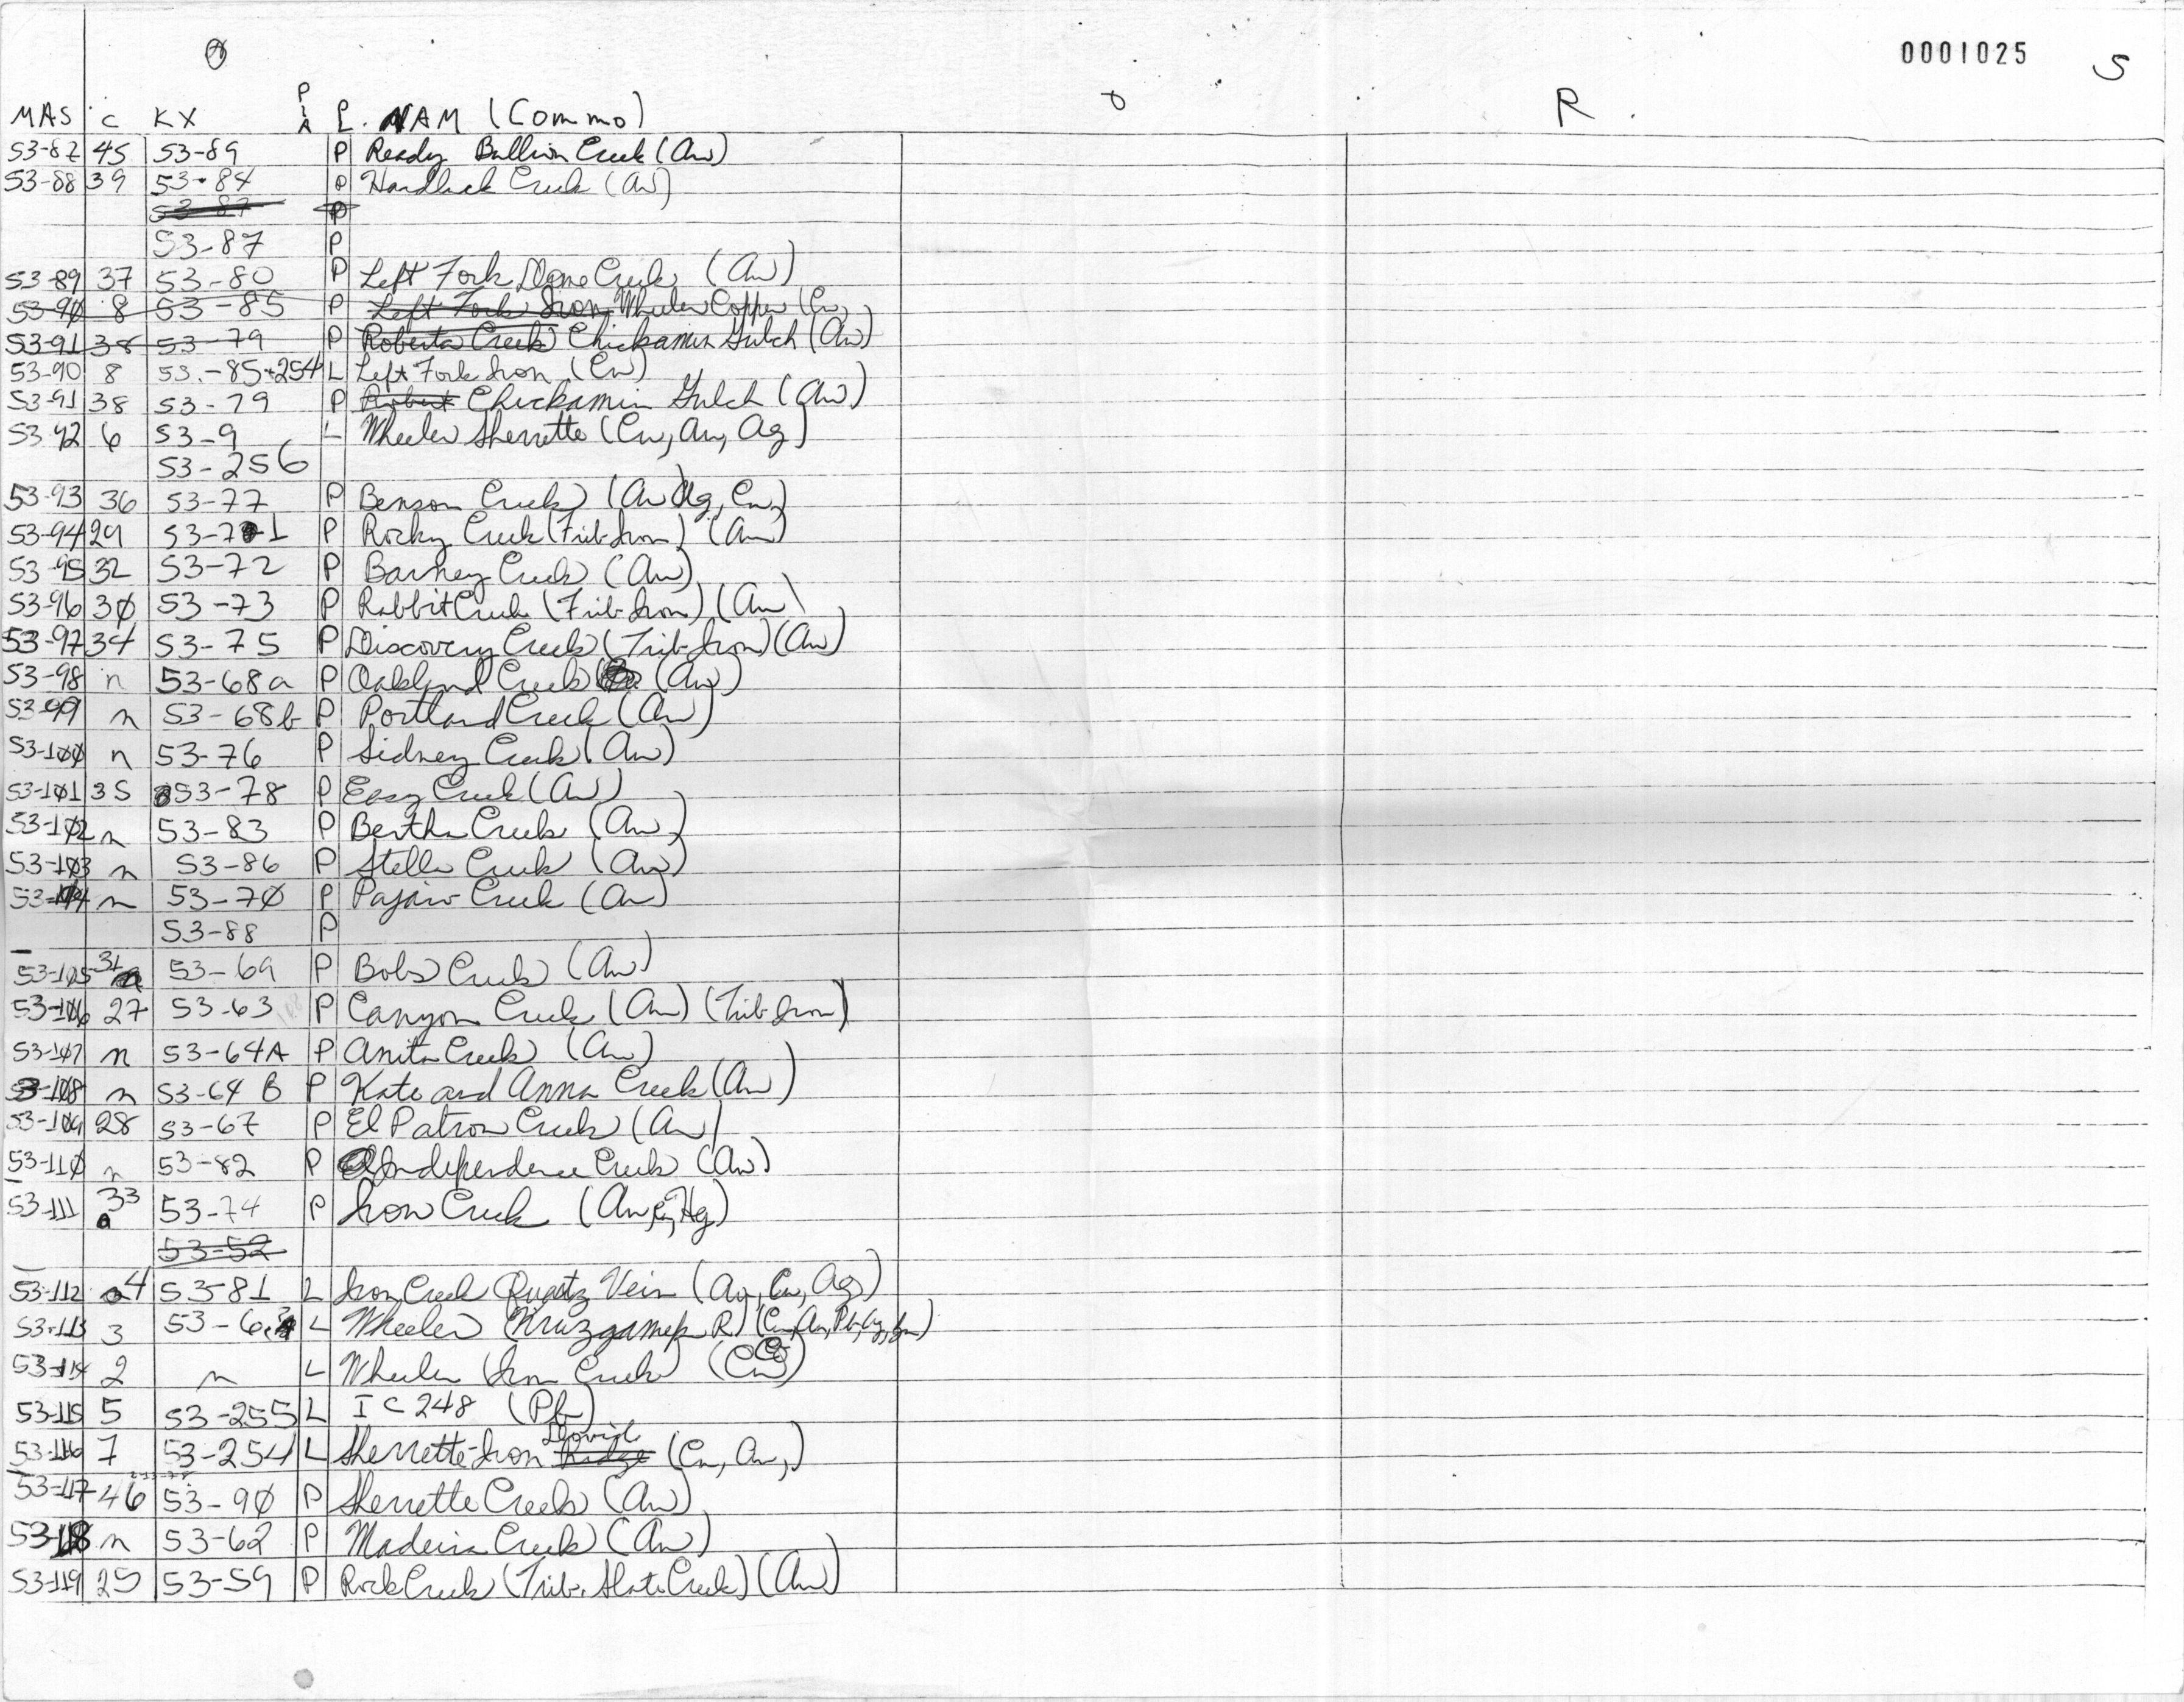 0001025 5
R.
P
I
MAS C KX A P L. NAM (Commo)
53-87 45 53-89 P Ready Bullion Creek (Au)
53-88 39 53-84 P Hardluck Creek (Au)
53-87 P
53-87 P
53-89 37 53-80 P Left Fork Dome Creek (Au)
53-90 8 53-85 P Left Fork Iron Wheeler Copper (Cu)
53-91 38 53-79 P Roberta Creek Chickamin Gulch (Au)
53-90 8 53-85+254 L Left Fork Iron (Cu)
53-91 38 53-79 P Robert Chickamin Gulch (Au)
53-92 6 53-9 L Wheeler Sherrette (Cu, Au, Ag)
53-256
53-93 36 53-77 P Benson Creek (Au Ag, Cu)
53-94 29 53-71 P Rocky Creek (Trib-Iron) (Au)
53-95 32 53-72 P Barney Creek (Au)
53-96 3Ø 53-73 P Rabbit Creek (Trib-Iron) (Au)
53-97 34 53-75 P Discovery Creek (Trib-Iron) (Au)
53-98 n 53-68a P Oakland Creek (Au)
53-99 n 53-68b P Portland Creek (Au)
53-1ØØ n 53-76 P Sidney Creek (Au)
53-1Ø1 35 53-78 P Easy Creek (Au)
53-1Ø2 n 53-83 P Bertha Creek (Au)
53-1Ø3 n 53-86 P Stella Creek (Au)
53-1Ø4 n 53-7Ø P Pajaro Creek (Au)
53-88 P
53-1Ø5 31 53-69 P Bobs Creek (Au)
53-1Ø6 27 53-63 P Canyon Creek (Au) (Trib-Iron)
53-1Ø7 n 53-64A P Anita Creek (Au)
53-1Ø8 n 53-64 B P Kate and Anna Creek (Au)
53-1Ø9 28 53-67 P El Patron Creek (Au)
53-11Ø n 53-82 P Independence Creek (Au)
53-111 33 53-74 P Iron Creek (Au, Cu, Hg)
53-52
53-112 4 53-81 L Iron Creek Quartz Vein (Au, Cu, Ag)
53-113 3 53-6 L Wheeler (Kruzgamepa R) (Cu, Au, Pb, Ag, Zn)
53-114 2 n L Wheeler Iron Creek (Cu)
53-115 5 53-255 L I C 248 (Pb)
David
53-116 7 53-254 L Sherrette-Iron Ridge (Cu, Au,)
53-117 46 53-9Ø P Sherrette Creek (Au)
53-118 n 53-62 P Madeira Creek (Au)
53-119 25 53-59 P Rock Creek (Trib. Slate Creek) (Au)